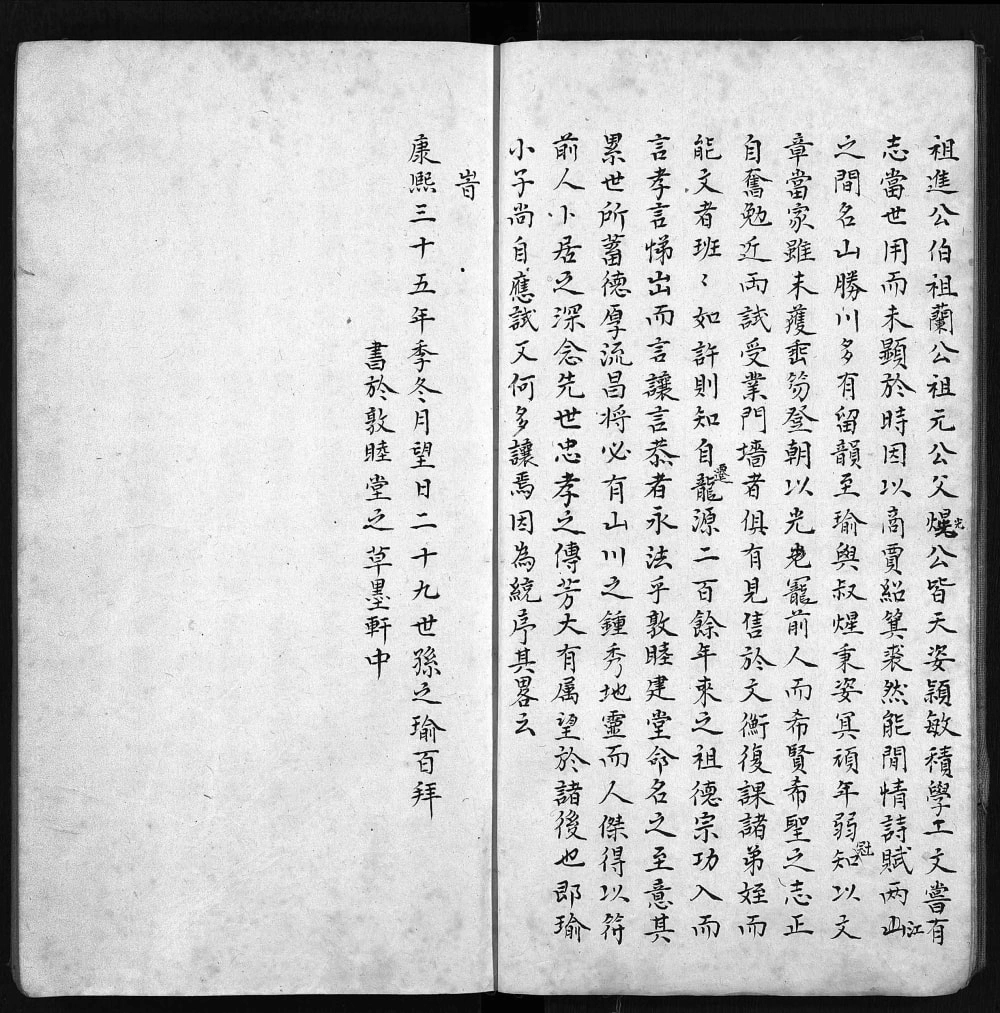 祖進公伯祖蘭公祖元公父熀公皆天姿穎敏積學工文嘗有
志當世用而未顯於時因以啇賈紹箕裘然能閒情詩賦两江
之間名山勝川多有留韻至瑜與叔煋秉姿冥頑年弱冠知以文
章當家雖未獲垂笏登朝以光寵前人而希賢希聖之志正
自奮勉近両試受業門墻者俱有見售於文衡復課諸弟姪而
能文者班〻如許則知自遷龍源二百餘年来之祖德宗功入而
言孝言悌出而言讓言恭者永法乎敦睦建堂命名之至意其
累世所蓄德厚流昌将必有山川之鍾秀地靈而人傑得以符
前人卜居之深念先世忠孝之傳芳大有属望於諸後也即瑜
小子尚自應試又何多讓焉因為統序其畧云
旹
康熙三十五年季冬月望日二十九世孫之瑜百拜
書於敦睦堂之草墨軒中